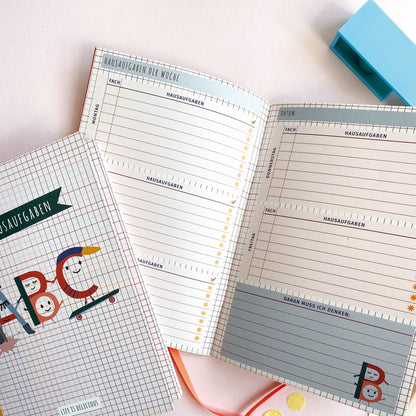 HAUSAUFGABEN DER WOCHE
FACH
HAUSAUFGABEN
MONTAG
HAUSAUFGABEN
HAUSAUFGABEN
DATUM
FACH
HAUSAUFGABEN
DONNERSTAG
FACH
HAUSAUFGABEN
FREITAG
DARAN MUSS ICH DENKEN:
B
USAUFGABEN
ABC
LIFE IS DELICIOUS